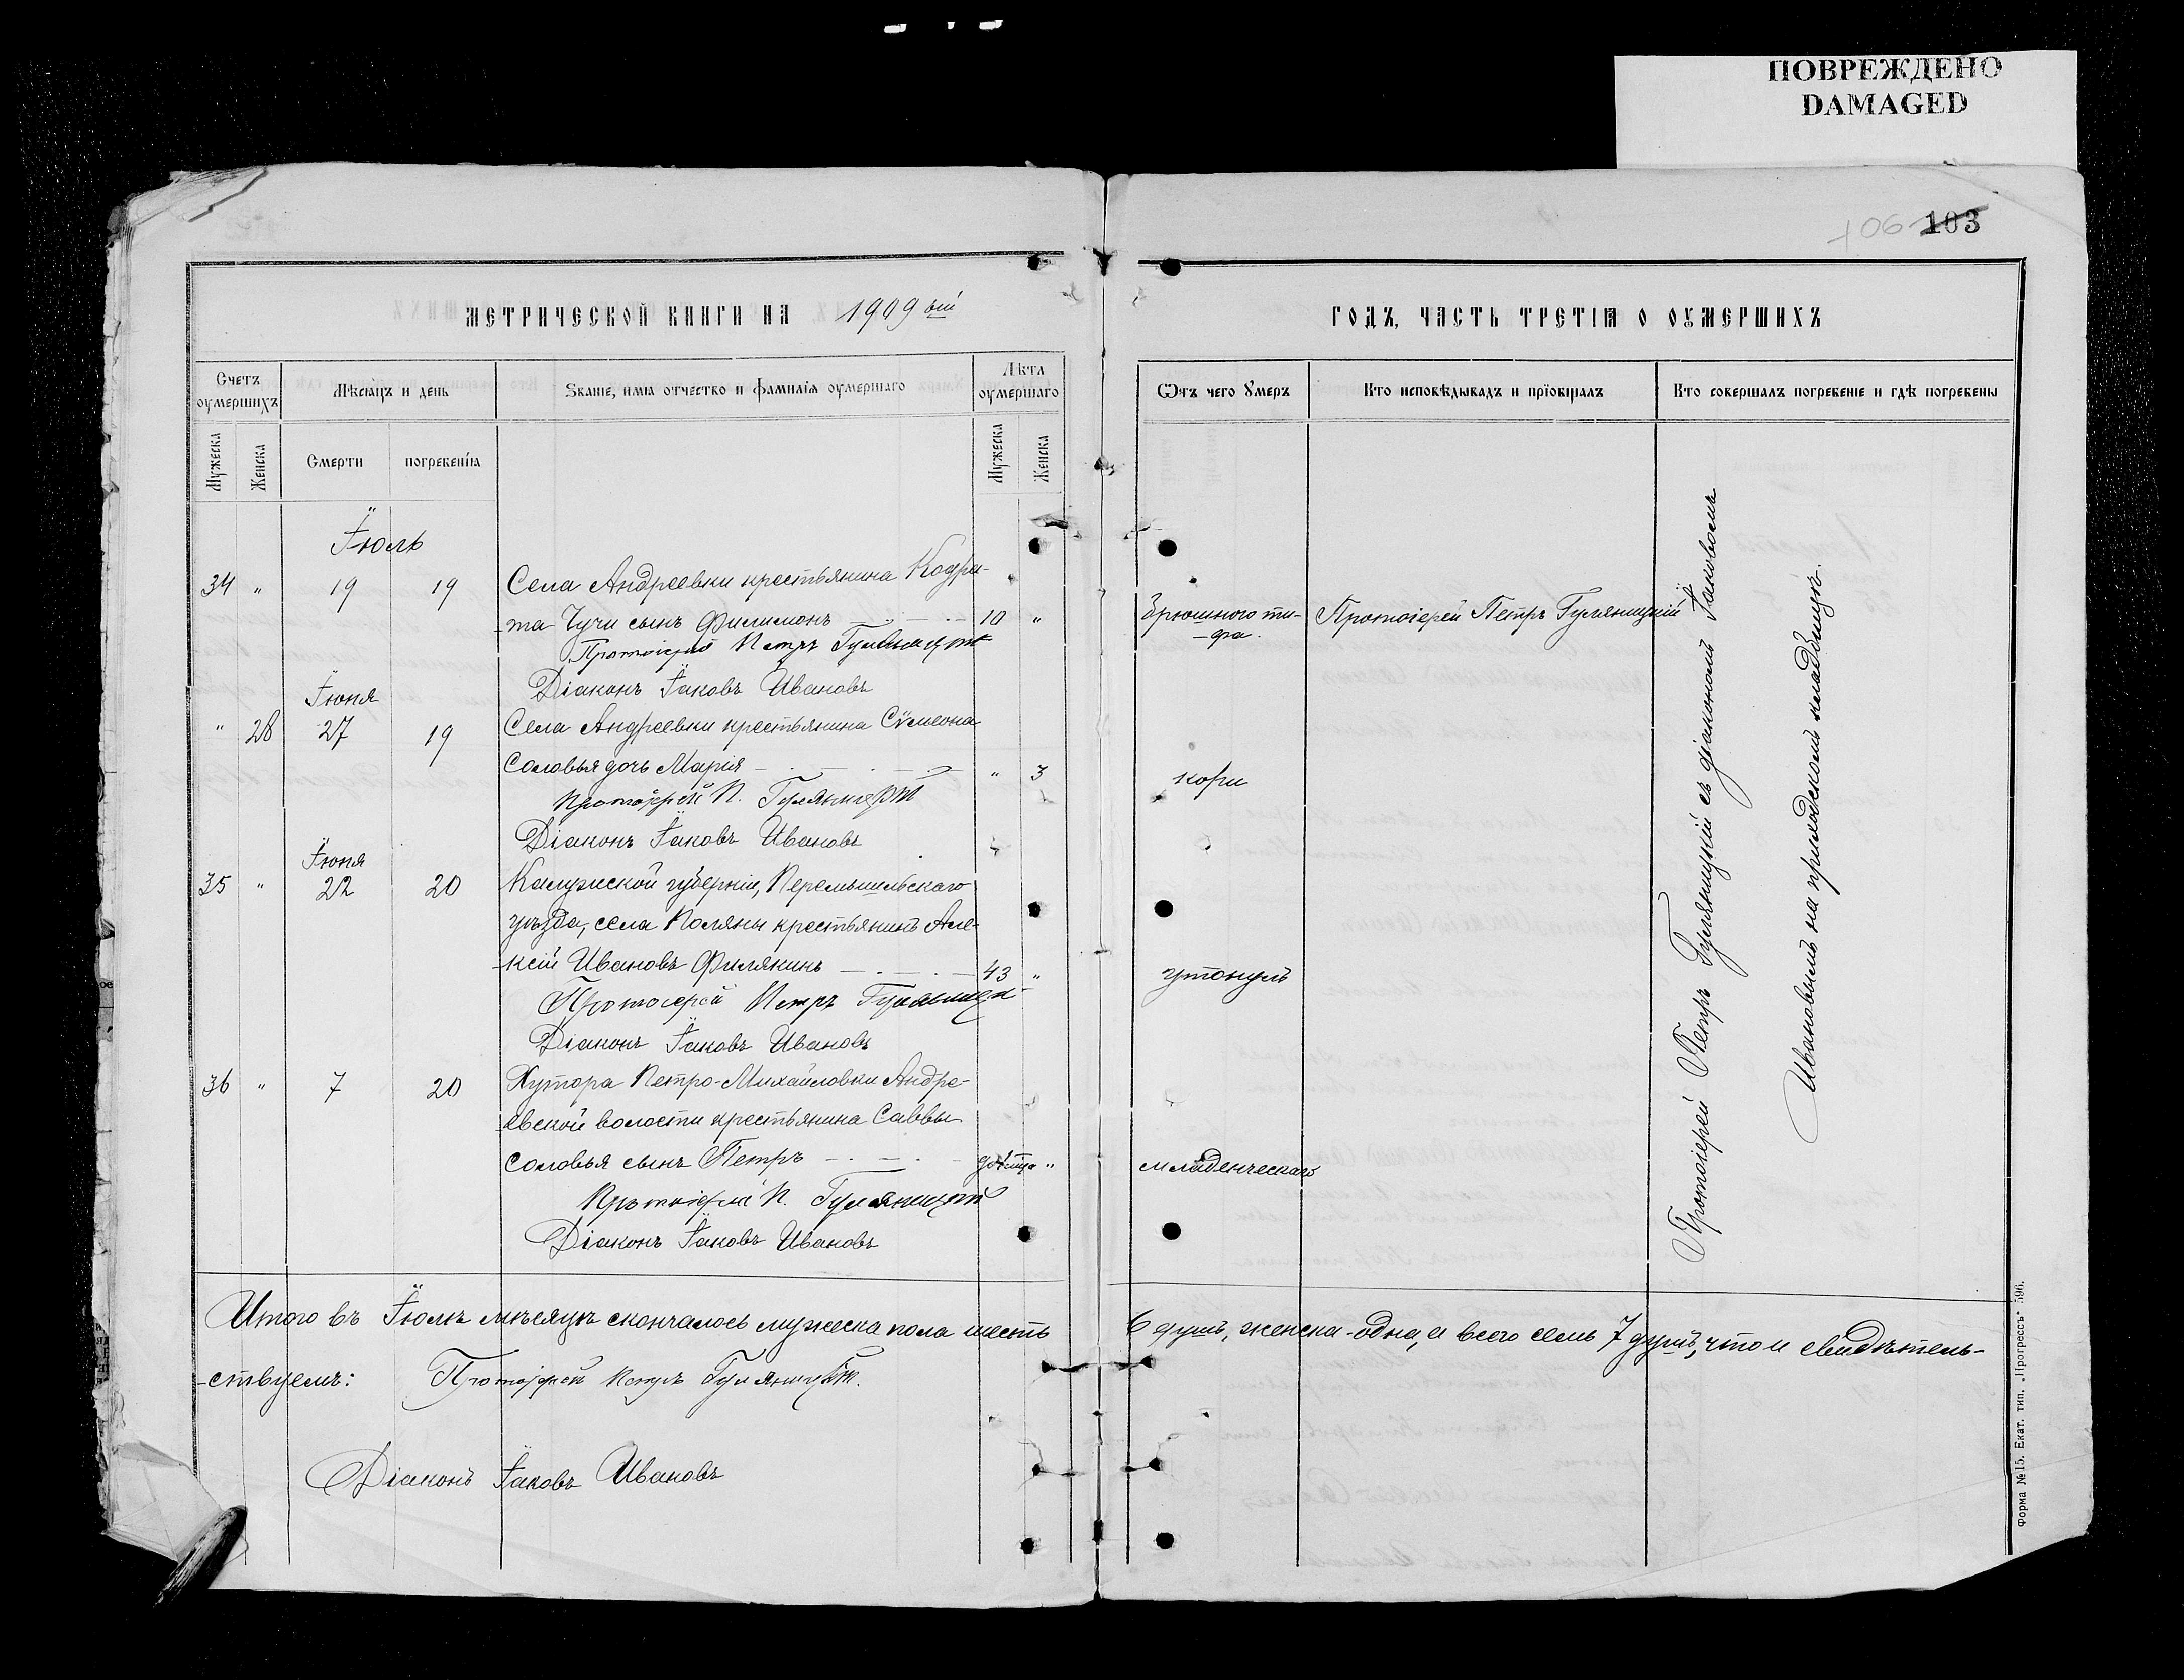 ПОВРЕЖДЕНО
DAMAGED
106 103
МЕТРИЧЕСКОЙ КНИГИ НА 1909 ый
ГОДЪ, ЧАСТЬ ТРЕТІѦ О ОУМЕРШИХЪ
Счетъ оумершихъ
Мѣсѧцъ и день
Званіе, имѧ отчество и фамиліѧ оумершаго
Лѣта оумершаго
Ѿтъ чего Умеръ
Кто исповѣдывалъ и прїобщалъ
Кто совершалъ погребеніе и гдѣ погребены
Мужеска
Женска
Смерти
погребеніѧ
Мужеска
Женска
Іюль
34 " 19 19 Села Андреевки крестьянина Кодра-
-та Чучи сынъ Филимонъ 10 " Брюшного ти- Протоіерей Петръ Гуляницкій
-фа.
Протоіерей Петръ Гуляницкій
Діаконъ Іаковъ Ивановъ
Іюня
" 28 27 19 Села Андреевки крестьянина Сѵмеона
Соловья дочь Марія " 3 кори
Протоіерей П. Гуляницкій
Діаконъ Іаковъ Ивановъ
Іюня
35 " 22 20 Калужской губерніи, Перемышльскаго
уѣзда, села Поляны крестьянинъ Але-
-ксій Ивановъ Филякинъ 43 " утонулъ
Протоіерей Петръ Гуляницкій
Діаконъ Іаковъ Ивановъ
36 " 7 20 Хутора Петро-Михайловки Андре-
-евской волости крестьянина Саввы
Соловья сынъ Петръ " младенческаго
Протоіерей П. Гуляницкій
Діаконъ Іаковъ Ивановъ
Протоіерей Петръ Гуляницкій съ діакономъ Іаковомъ
Ивановымъ на приходскомъ кладбищѣ.
Итого въ Іюлѣ мѣсяцѣ скончалось мужеска пола шесть 6 душъ, женска-одна, а всего семь 7 душъ, что и свидѣтель-
-ствуемъ: Протоіерей Петръ Гуляницкій.
Діаконъ Іаковъ Ивановъ
Форма №15. Екат. тип. „Прогрессъ" 596.